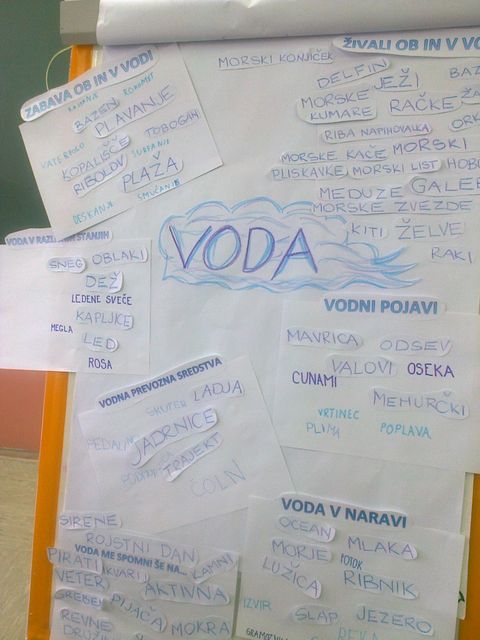 ZABAVA OB IN V VODI
BAZEN
PLAVANJE
VATERPOLO
KOPALIŠČE
TOBOGAN
RIBOLOV
PLAŽA
DESKANJE
SMUČANJE
MORSKI KONJIČEK
ŽIVALI OB IN V VO
DELFIN
JEŽI
BAZ
MORSKE
KUMARE
RAČKE
ORK
RIBA NAPIHOVALKA
MORSKE KAČE
MORSKI
PLISKAVKE
MORSKI LIST
HOBO
MEDUZE
GALEB
MORSKE ZVEZDE
KITI
ŽELVE
RAKI
VODA
SNEG
OBLAKI
DEŽ
LEDENE SVEČE
KAPLJICE
MEGLA
LED
ROSA
VODNI POJAVI
MAVRICA
ODSEV
VALOVI
OSEKA
CUNAMI
MEHURČKI
VRTINEC
PLIMA
POPLAVA
VODNA PREVOZNA SREDSTVA
SKUTER
LADJA
JADRNICE
TRAJEKT
ČOLN
VODA V NARAVI
OCEAN
MLAKA
MORJE
POTOK
LUŽICA
RIBNIK
IZVIR
SLAP
JEZERO
SIRENE
ROJSTNI DAN
VODA ME SPOMNI ŠE NA...
PIRATI
KVARI
VETER
AKTIVNA
GREBEN
PIJAČA
MOKRA
REVNE
DRUŽIN